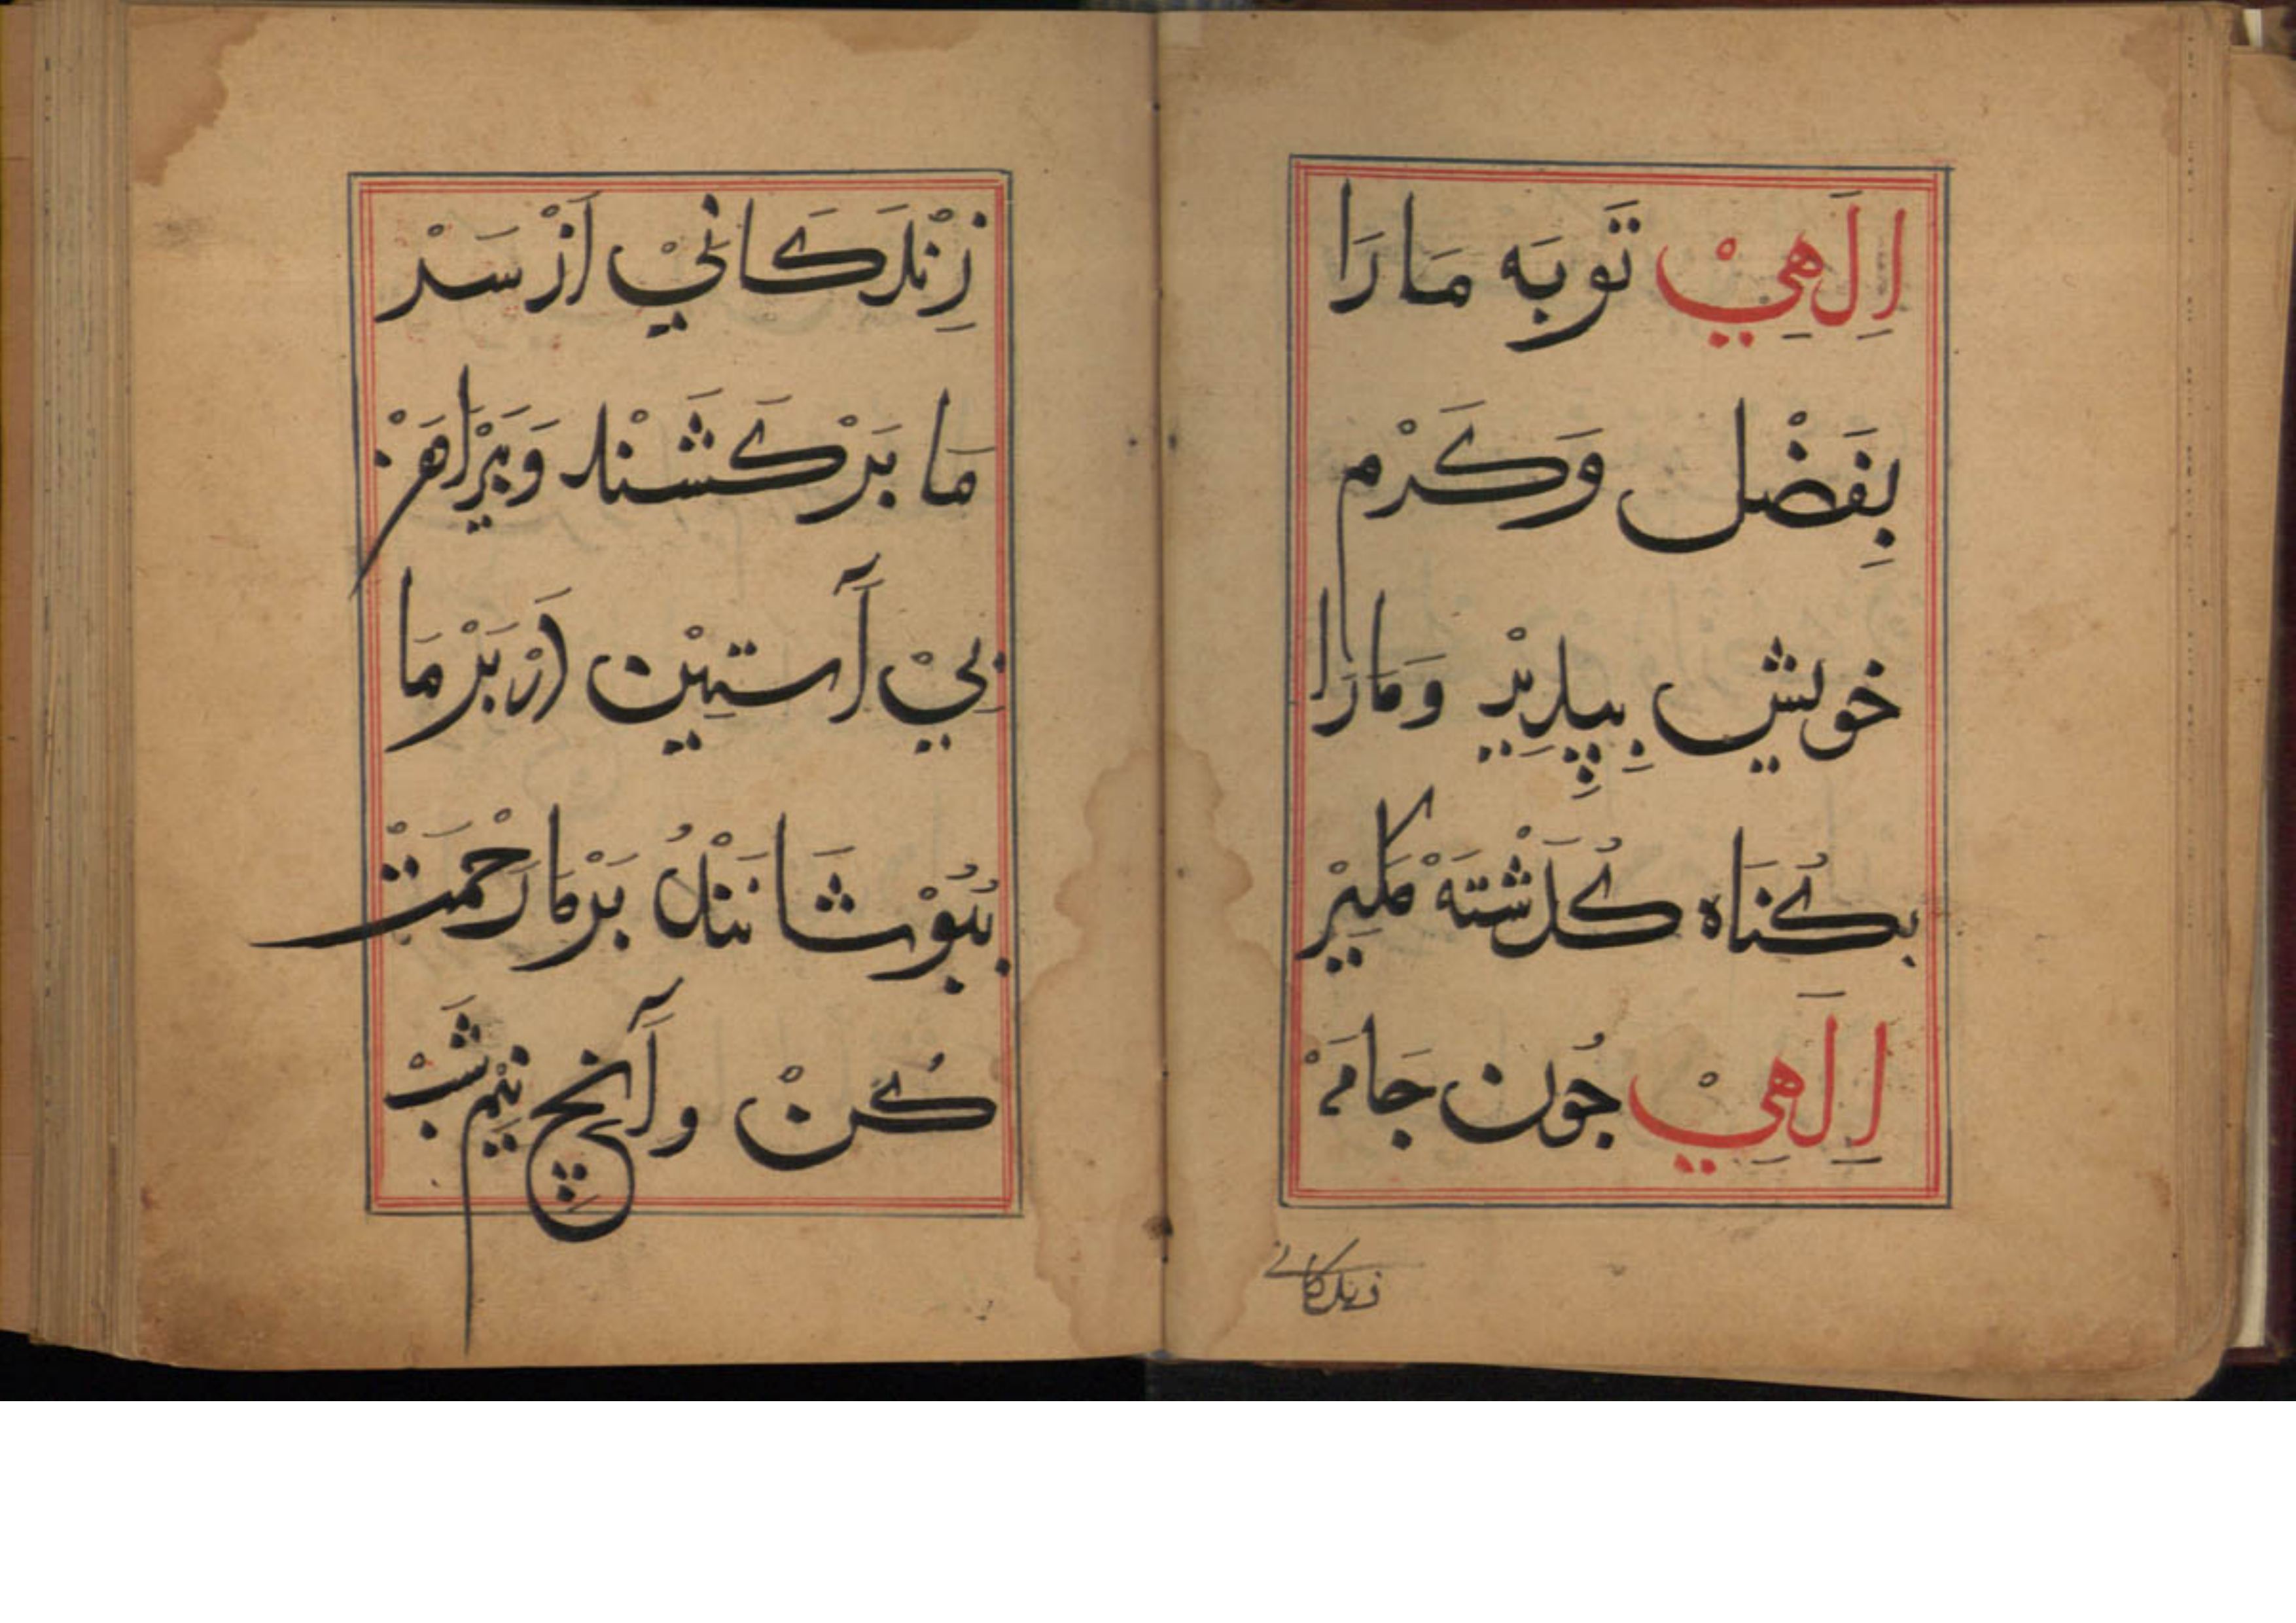 اِلٰهِيْ تَوبَه مَارَا
بِفَضْل وَكَرْم
خويش بِپِذِيْر وَمَارَا
بكُنَاه كُذَشْتَه مَكِيْر
اِلٰهِيْ جُون جَامَهْ
زندكاني
زِنْدَكَانِيْ اَزْ سَرْ
مَا بَرْكَشَنْد وَپَيْرَاهَنْ
بِيْ آستِيْن دَرْ بَرْ مَا
بُپُوْشَانَنْدُ بَرْمَا رَحْمَتْ
كُنْ و آنچِ نِيْم شَبْ